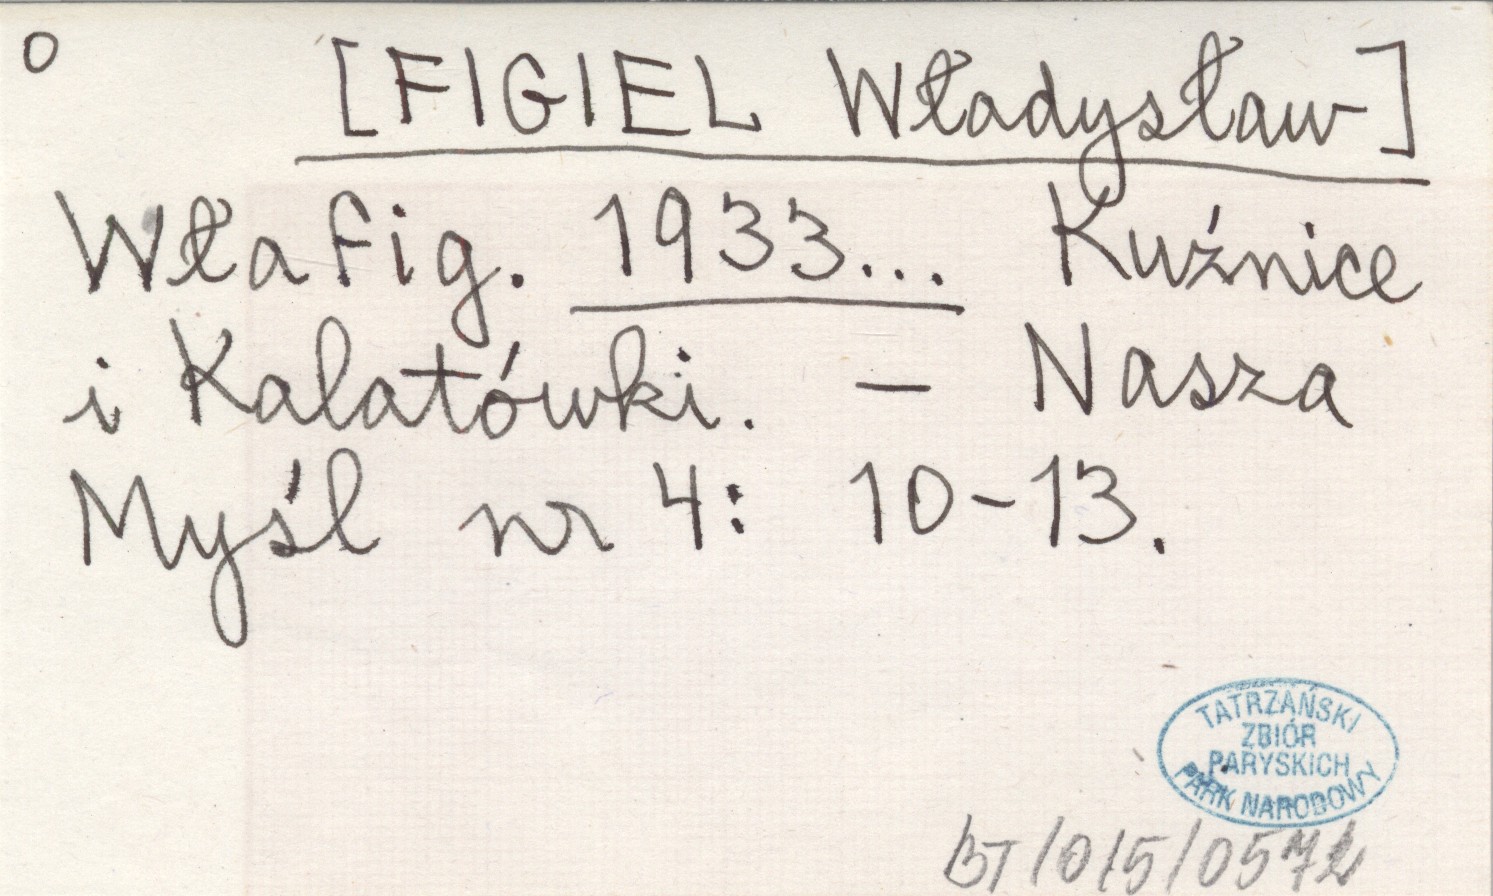 O
[FIGIEL Władysław]
Wła Fig. 1933... Kuźnice
i Kalatówki. – Nasza
Myśl nr 4: 10-13.
TATRZAŃSKI
ZBIÓR
PARYSKICH
PARK NARODOWY